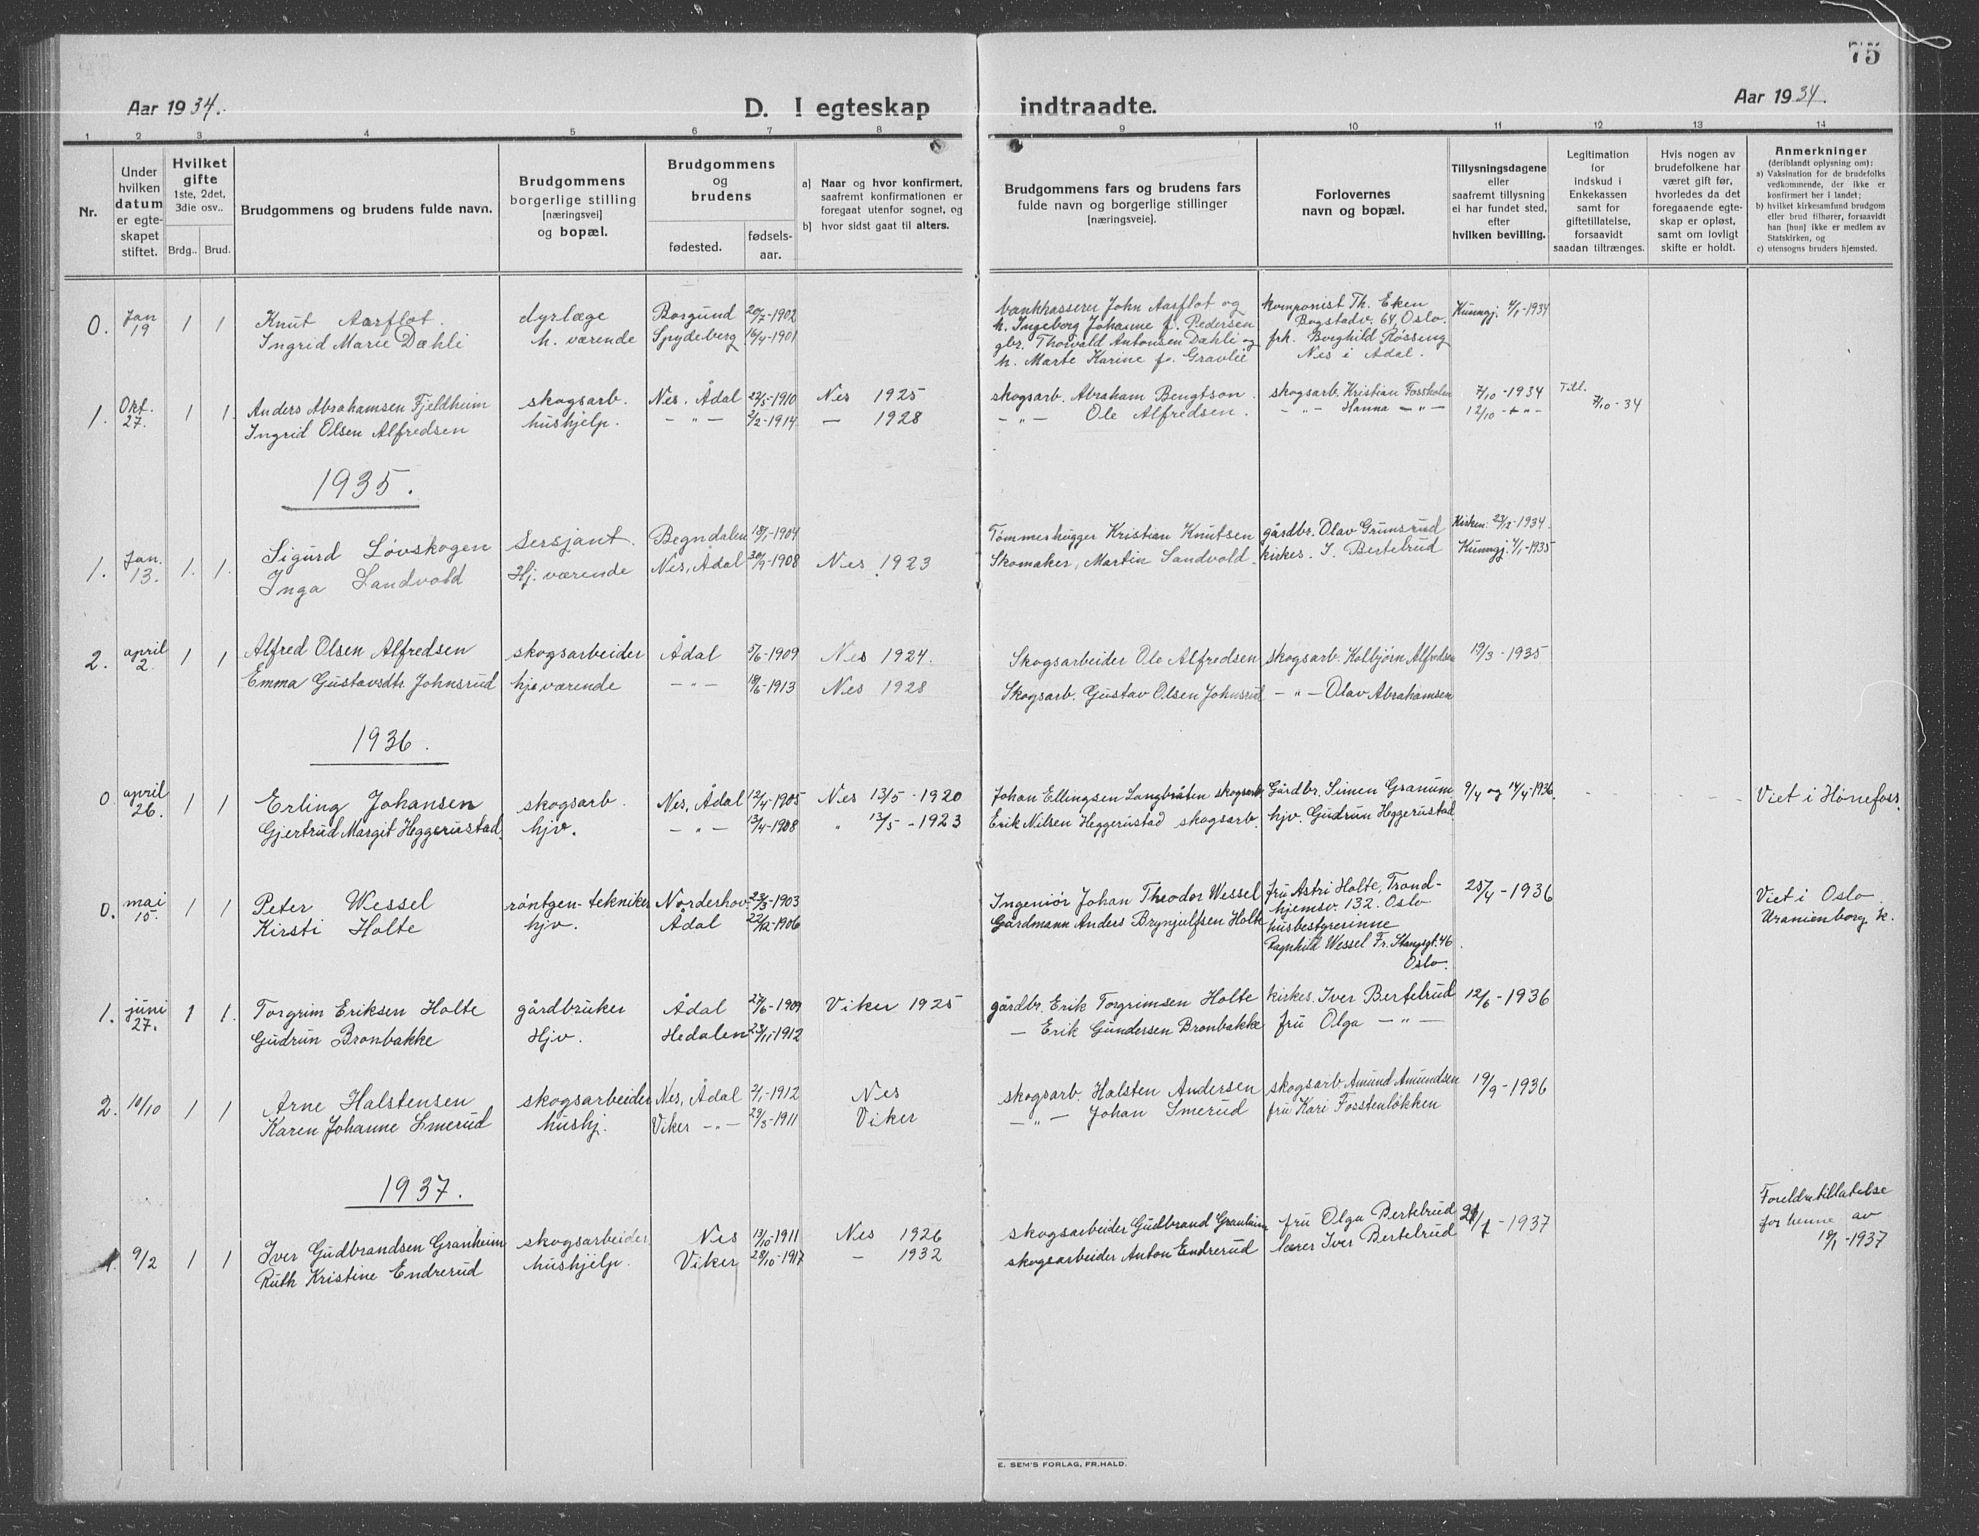 75
Aar 1934.
D. I egteskap indtraadte.
Aar 1934.
1 2 3 4 5 6 7 8 9 10 11 12 13 14
Nr.
Under hvilken datum er egte- skapet stiftet.
Hvilket gifte 1ste, 2det, 3die osv..
Brdg.. Brud.
Brudgommens og brudens fulde navn.
Brudgommens borgerlige stilling [næringsvei] og bopæl.
Brudgommens og brudens
fødested. fødsels- aar.
a] Naar og hvor konfirmert, saafremt konfirmationen er foregaat utenfor sognet, og
b] hvor sidst gaat til alters.
Brudgommens fars og brudens fars fulde navn og borgerlige stillinger [næringsveie].
Forlovernes navn og bopæl.
Tillysningsdagene eller saafremt tillysning ei har fundet sted, efter hvilken bevilling.
Legitimation for indskud i Enkekassen samt for giftetillatelse, forsaavidt saadan tiltrænges.
Hvis nogen av brudefolkene har været gift før, hvorledes da det foregaaende egte- skap er opløst, samt om lovligt skifte er holdt.
Anmerkninger (deriblandt oplysning om):
a) Vaksination for de brudefolks vedkommende, der ikke er konfirmert her i landet;
b) hvilket kirkesamfund brudgom eller brud tilhører, forsaavidt han [hun] ikke er medlem av Statskirken, og
c) utensogns bruders hjemsted.
0. Jan 19 1 1 Knut Aarflot. dyrlæge Borgund 20/7-1902 bankkasserer John Aarflot og komponist Th. Eken Kunngj. 4/1-1934
Ingrid Marie Dæhli h. værende Spydeberg 16/4-1901 h. Ingeborg Johanne f. Pedersen Bogstadv. 64, Oslo.
gbr. Thorvald Antonsen Dæhli og frk. Borghild Røsseng
h. Marte Karine f. Gravlie Nes i Ådal.
1. Okt. 27. 1 1 Anders Abrahamsen Fjeldheim skogsarb. Nes, Ådal 22/5-1910 Nes 1925 skogsarb. Abraham Bengtson skogsarb. Kristian Fossholm 7/10-1934 Till. 7/10-34
Ingrid Olsen Alfredsen hushjelp. - " - 2/2-1914 — 1928 - " - Ole Alfredsen. - " - Hanna - " - 12/10 - " -
1935.
1. Jan. 13. 1. 1. Sigurd Løvskogen Sersjant. Begndalen 18/1-1904 Tømmerhugger Kristian Knutsen gårdbr. Olav Grunsrud Kirken. 23/12-1934
Inga Sandvold Hj. værende Nes, Ådal 30/9-1908 Nes 1923 Skomaker, Martin Sandvold. kirkes. I. Bertelrud Kunngj. 4/1-1935
2. april 2. 1 1 Alfred Olsen Alfredsen skogsarbeider Ådal 5/6-1909 Nes 1924. Skogsarbeider Ole Alfredsen skogsarb. Kolbjørn Alfredsen 19/3-1935
Emma Gustavsdtr Johnsrud hjv. værende - " - 18/6-1913 Nes 1928 Skogsarb. Gustav Olsen Johnsrud - " - Olav Abrahamsen
1936.
0 april 26. 1 1 Erling Johansen skogsarb. Nes, Ådal 12/4-1905 Nes 13/5-1920 Johan Ellingsen Langbråten skogsarb. Gårdbr. Simen Granum 9/4 og 14/4-1936. Viet i Hønefoss.
Gjertrud Margit Heggerustad. hjv. - " - 13/4-1908 " 13/5-1923 Erik Nilsen Heggerustad skogsarb. hjv. Gudrun Heggerustad
0. mai 15. 1 1 Peter Wessel røntgen-tekniker Norderhov 23/3-1903 Ingeniør Johan Theodor Wessel fru Astri Holte, Trond- 25/4-1936 Viet i Oslo
Kirsti Holte hjv. Ådal 22/12-1906 Gårdmann Anders Brynjulfsen Holte hjemsv. 132. Oslo Uranienborg k.
husbestyrerinne
Ragnhild Wessel Fr. Stangsgt. 46
Oslo.
1. juni 27. 1 1. Torgrim Eriksen Holte gårdbruker Ådal 27/6-1909 Viker 1925 gårdbr. Erik Torgrimsen Holte kirkes. Iver Bertelrud 12/6-1936
Gudrun Bronbakke Hjv. Hedalen 23/11-1912 — Erik Gundersen Bronbakke fru Olga - " -
2. 10/10 1 1 Arne Halstensen skogsarbeider Nes, Ådal 2/1-1912 Nes skogsarb. Halsten Andersen skogsarb. Amund Amundsen 19/9-1936
Karen Johanne Smerud hushj. Viker - " - 29/3-1911 Viker - " - Johan Smerud fru Kari Fosstenløkken
1937.
1. 9/2 1 1 Iver Gudbrandsen Granheim skogsarbeider Nes 13/10-1911 Nes 1926 skogsarbeider Gudbrand Granheim fru Olga Bertelrud 21/1-1937 Foreldretillatelse
Ruth Kristine Endrerud hushjelp. Viker 28/10-1917 — 1932 skogsarbeider Anton Endrerud lærer Iver Bertelrud for henne av
18/1-1937
E. SEM'S FORLAG, FR.HALD.